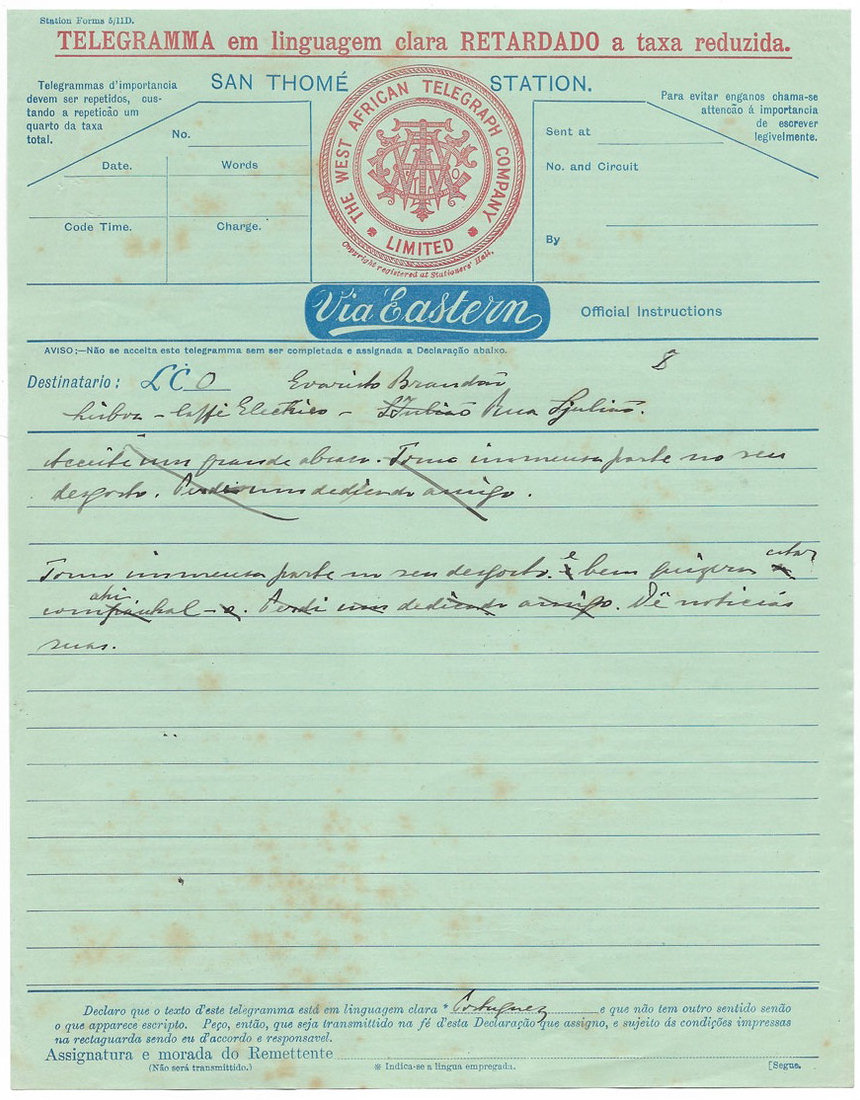 Station Forms 5/11D.
TELEGRAMMA em linguagem clara RETARDADO a taxa reduzida.
Telegrammas d'importancia
devem ser repetidos, cus-
tando a repeticão um
quarto da taxa
total.
SAN THOMÉ STATION.
Para evitar enganos chama-se
attencão á importancia
de escrever
legivelmente.
No.
Date.
Words
Code Time.
Charge.
THE WEST AFRICAN TELEGRAPH COMPANY
LIMITED
Copyright registered at Stationers' Hall.
Sent at
No. and Circuit
By
Via Eastern
Official Instructions
AVISO:—Não se acceita este telegramma sem ser completada e assignada a Declaração abaixo.
8
Destinatario: LCO Evaristo Brandão
Lisboa - Caffé Electrico - S Julião Rua S julião.
Acceite um grande abraço. Tomo immensa parte no seu
desgosto. Perdi um dedicado amigo.
Tomo immensa parte no seu desgosto. e bem quizera estar
ahi
companhal-o. Perdi um dedicado amigo. Dê noticias
suas.
Declaro que o texto d'este telegramma está em linguagem clara * Portuguez e que não tem outro sentido senão
o que apparece escripto. Peço, então, que seja transmittido na fé d'esta Declaração que assigno, e sujeito ás condições impressas
na rectaguarda sendo eu d'accordo e responsavel.
Assignatura e morada do Remettente
(Não será transmittido.)
* Indica-se a lingua empregada.
[Segue.